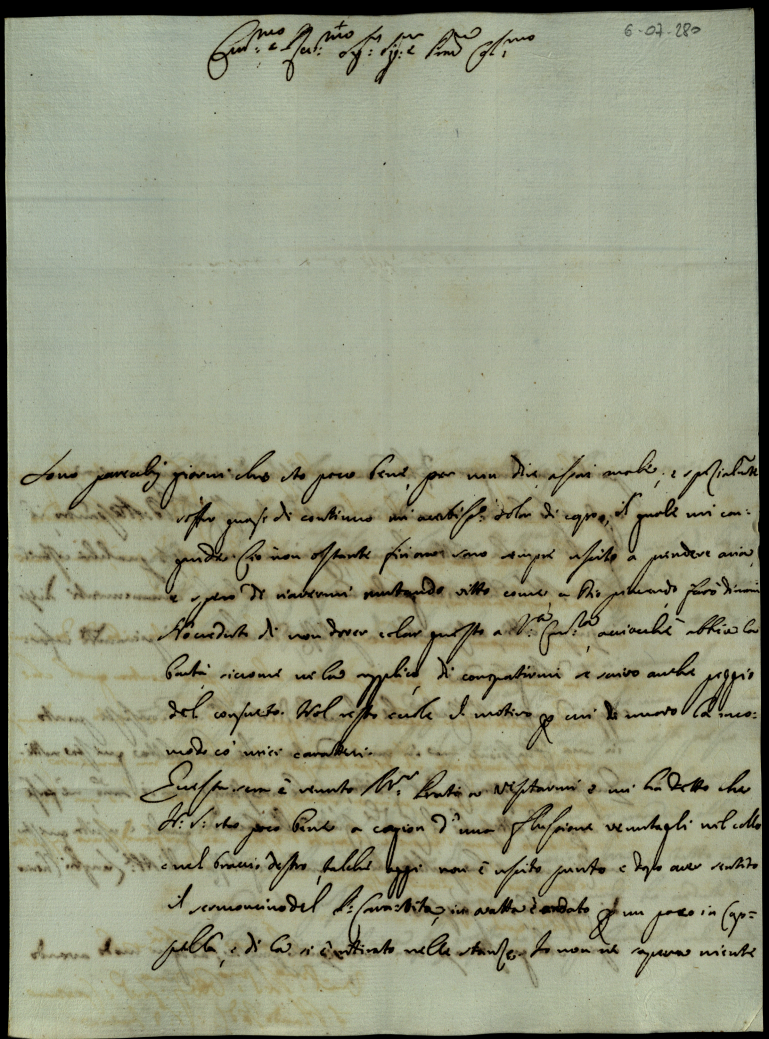 6-07-280
Em:mo e Rev:mo Sig:r Sig:r e Pron Col:mo
Sono parecchj giorni che sto poco bene, per non dir assai male, e spezialmte
soffro quasi di continuo un acerbiss:o dolor di capo, il quale mi con-
quide. Ciò non ostante finora sono sempre uscito a prendere aria,
e spero di riavermi mutando vitto come, a Dio piacendo, farò dimani
Ho creduto di non dover celar questo a V:ra Em:za acciocchè abbia la
bontà, siccome ne la supplico, di compatirmi se scrivo anche peggio
del consueto. Nel resto eccole il motivo per cui di nuovo la inco-
modo co' miei caratteri.
Questa sera è venuto Mr: Prati a visitarmi e mi ha detto che
N: S: sta poco bene a cagion d'una flussione venutagli nel collo
e nel braccio destro, talchè oggi non è uscito punto e dopo aver sentito
il sermoncino del P: Caravita, in è andato per un poco in Cap-
pella, e di là si è ritirato nelle stanze. Io non ne sapeva niente